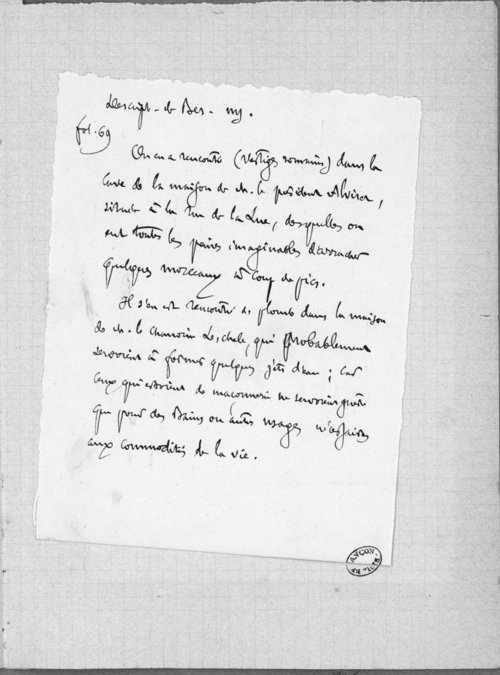 Descript. de Bes. ms.
fol. 69
On en a rencontré (vestiges romains) dans la
cave de la maison de M. le président Alviset,
située à la rue de la Lue, desquelles on
eut toutes les peines imaginables d'arracher
quelques morceaux à coup de pics.
Il s'en est rencontré de plomb dans la maison
de M. le chanoine, qui probablement
servoient à former quelques jets d'eau ; car
ceux qui étoient de maçonnerie ne servoient guère
que pour des Bains ou autres usages nécessaires
aux commodités de la vie.
ANÇON